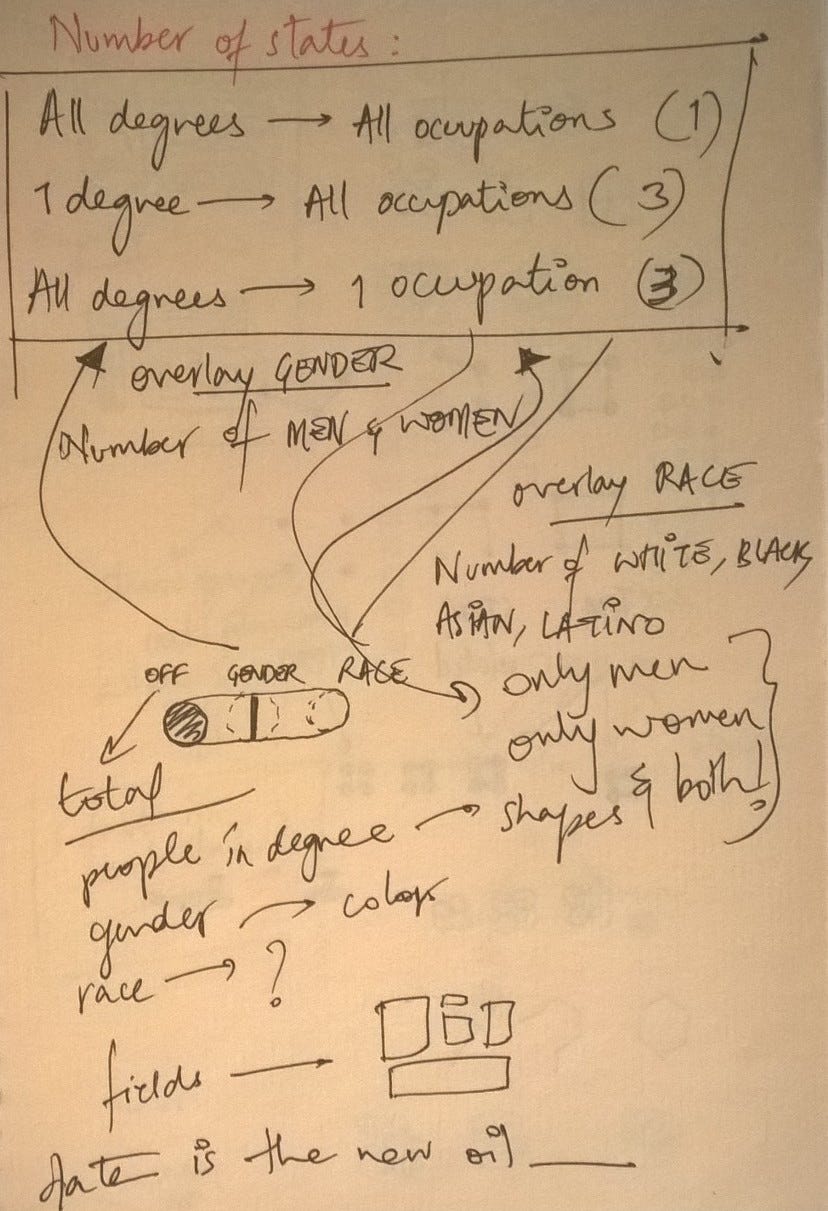 Number of states :
All degrees → All occupations (1)
1 degree → All occupations (3)
All degrees → 1 occupation (3)
overlay GENDER
Number of MEN & WOMEN
overlay RACE
Number of WHITE, BLACK,
ASIAN, LATINO
OFF GENDER RACE
only men
only women
& both!
total
people in degree → shapes
gender → color
race → ?
fields →
data is the new oil